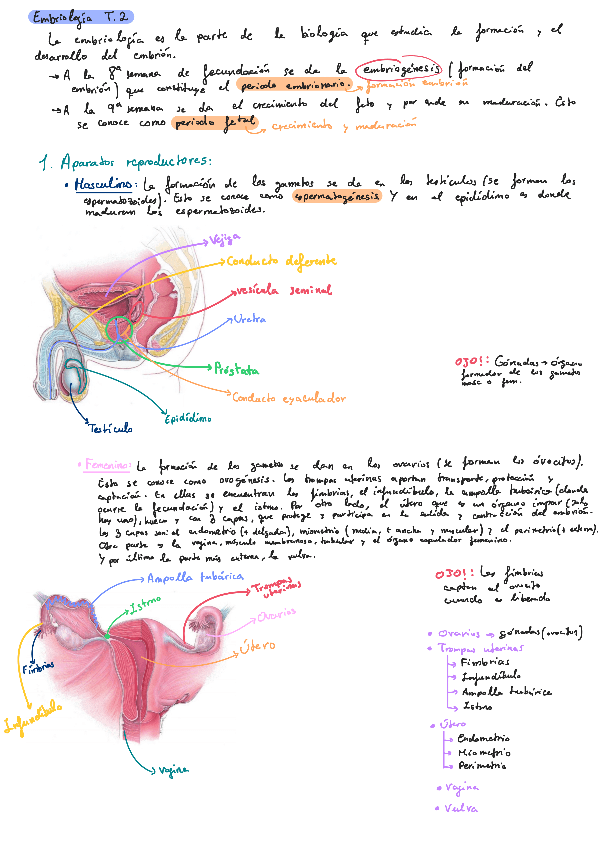 Embriología T.2
La embriología es la parte de la biología que estudia la formación y el
desarrollo del embrión.
→ A la 8ª semana de fecundación se da la embriogénesis (formación del
embrión) que constituye el periodo embrionario. → formación embrión
→ A la 9ª semana se da el crecimiento del feto y por ende su maduración. Esto
se conoce como periodo fetal → crecimiento y maduración
1. Aparatos reproductores:
• Masculino: La formación de los gametos se da en los testículos (se forman los
espermatozoides). Esto se conoce como espermatogénesis y en el epidídimo es donde
maduran los espermatozoides.
Vejiga
Conducto deferente
vesícula seminal
Uretra
Próstata
Conducto eyaculador
Epidídimo
Testículo
OJO!: Gónadas → órgano
formador de los gametos
masc o fem.
• Femenino: La formación de los gametos se dan en los ovarios (se forman los óvocitos).
Esto se conoce como ovogénesis. Las trompas uterinas aportan transporte, protección y
captación. En ellas se encuentran las fimbrias, el infundíbulo, la ampolla tubárica (donde
ocurre la fecundación) y el istmo. Por otro lado, el útero que es un órgano impar (solo
hay uno), hueco y con 3 capas, que protege y participa en la salida y contracción del embrión.
Las 3 capas son: el endometrio (+ delgada), miometrio (media, + ancha y muscular) y el perimetrio (+ externa).
Otra parte es la vagina, músculo membranoso, tubular y el órgano copulador femenino.
Y por último la parte más externa, la vulva.
Ampolla tubárica
Istmo
Trompas
uterinas
Ovarios
Útero
Fimbrias
Infundíbulo
Vagina
OJO!: Las fimbrias
captan el ovocito
cuando es liberado
• Ovarios → gónadas (ovocitos)
• Trompas uterinas
→ Fimbrias
→ Infundíbulo
→ Ampolla tubárica
→ Istmo
• Útero
→ Endometrio
→ Miometrio
→ Perimetrio
• Vagina
• Vulva